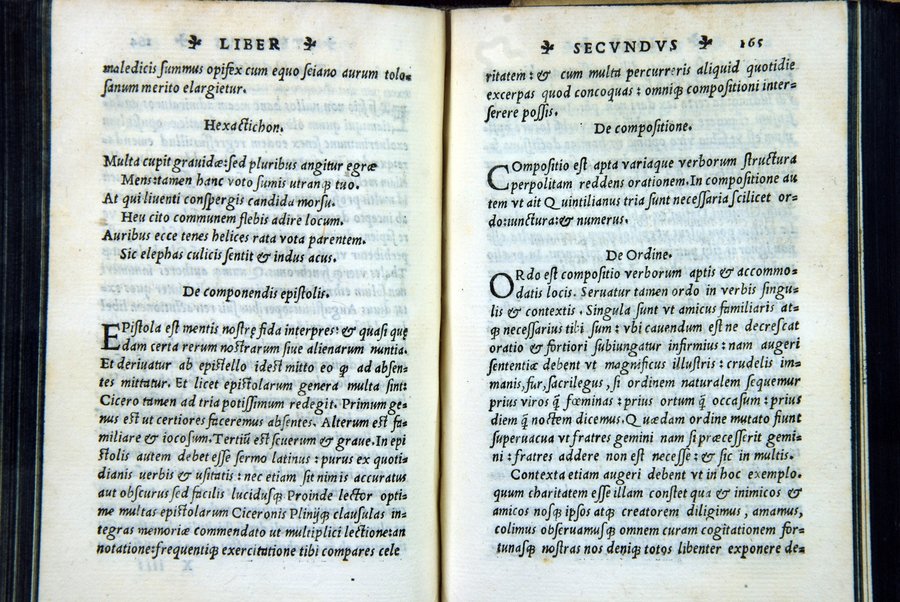 LIBER
maledicis summus opifex cum equo seiano aurum tolo-
sanum merito elargietur.
Hexastichon.
Multa cupit grauidæ: sed pluribus angitur egræ
Mens: tamen hanc voto sumis utranq̃ tuo.
At qui liuenti conspergis candida morsu.
Heu cito communem flebis adire locum.
Auribus ecce tenes helices rata vota parentem.
Sic elephas culicis sentit & indus acus.
De componendis epistolis.
EPistola est mentis nostrę fida interpres: & quasi quę
dam certa rerum nostrarum siue alienarum nuntia.
Et deriuatur ab epistello idest mitto eo q̃ ad absen-
tes mittatur. Et licet epistolarum genera multa sint:
Cicero tamen ad tria potissimum redegit. Primum ge-
nus est ut certiores faceremus absentes. Alterum est fa-
miliare & iocosum. Tertiũ est seuerum & graue. In epi
stolis autem debet esse sermo latinus: purus ex quoti-
dianis uerbis & usitatis: nec etiam sit nimis accuratus
aut obscurus sed facilis lucidusq; Proinde lector opti-
me multas epistolarum Ciceronis Plinijq; clausulas in-
tegras memoriæ commendato ut multiplici lectione: an
notatione: frequentiq; exercitatione tibi compares cele
SECVNDVS 165
ritatem: & cum multa percurreris aliquid quotidie
excerpas quod concoquas: omniq; compositioni inter-
serere possis.
De compositione.
COmpositio est apta variaque verborum structura
perpolitam reddens orationem. In compositione au
tem vt ait Quintilianus tria sunt necessaria scilicet or-
do: iunctura: & numerus.
De Ordine.
ORdo est compositio verborum aptis & accommo-
datis locis. Seruatur tamen ordo in verbis singu-
lis & contextis. Singula sunt vt amicus familiaris at-
q; necessarius tibi sum: vbi cauendum est ne decrescat
oratio & fortiori subiungatur infirmius: nam augeri
sententiæ debent vt magnificus illustris: crudelis im-
manis, fur, sacrilegus, si ordinem naturalem sequemur
prius viros q̃ fœminas: prius ortum q̃ occasum: prius
diem q̃ noctem dicemus. Quædam ordine mutato fiunt
superuacua vt fratres gemini nam si præcesserit gemi-
ni: fratres addere non est necesse: & sic in multis.
Contexta etiam augeri debent vt in hoc exemplo.
quum charitatem esse illam constet qua & inimicos &
amicos nosq; ipsos atq; creatorem diligimus, amamus,
colimus obseruamusq; omnem curam cogitationem for-
tunasq; nostras nos deniq; totos libenter exponere de-